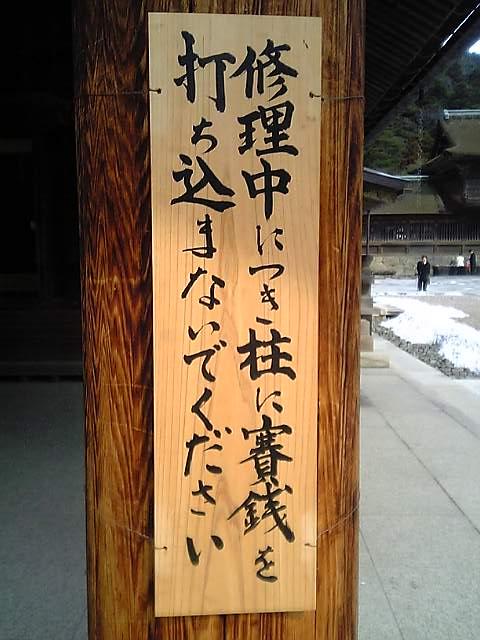 修理中につき柱に賽銭を
打ち込まないでください